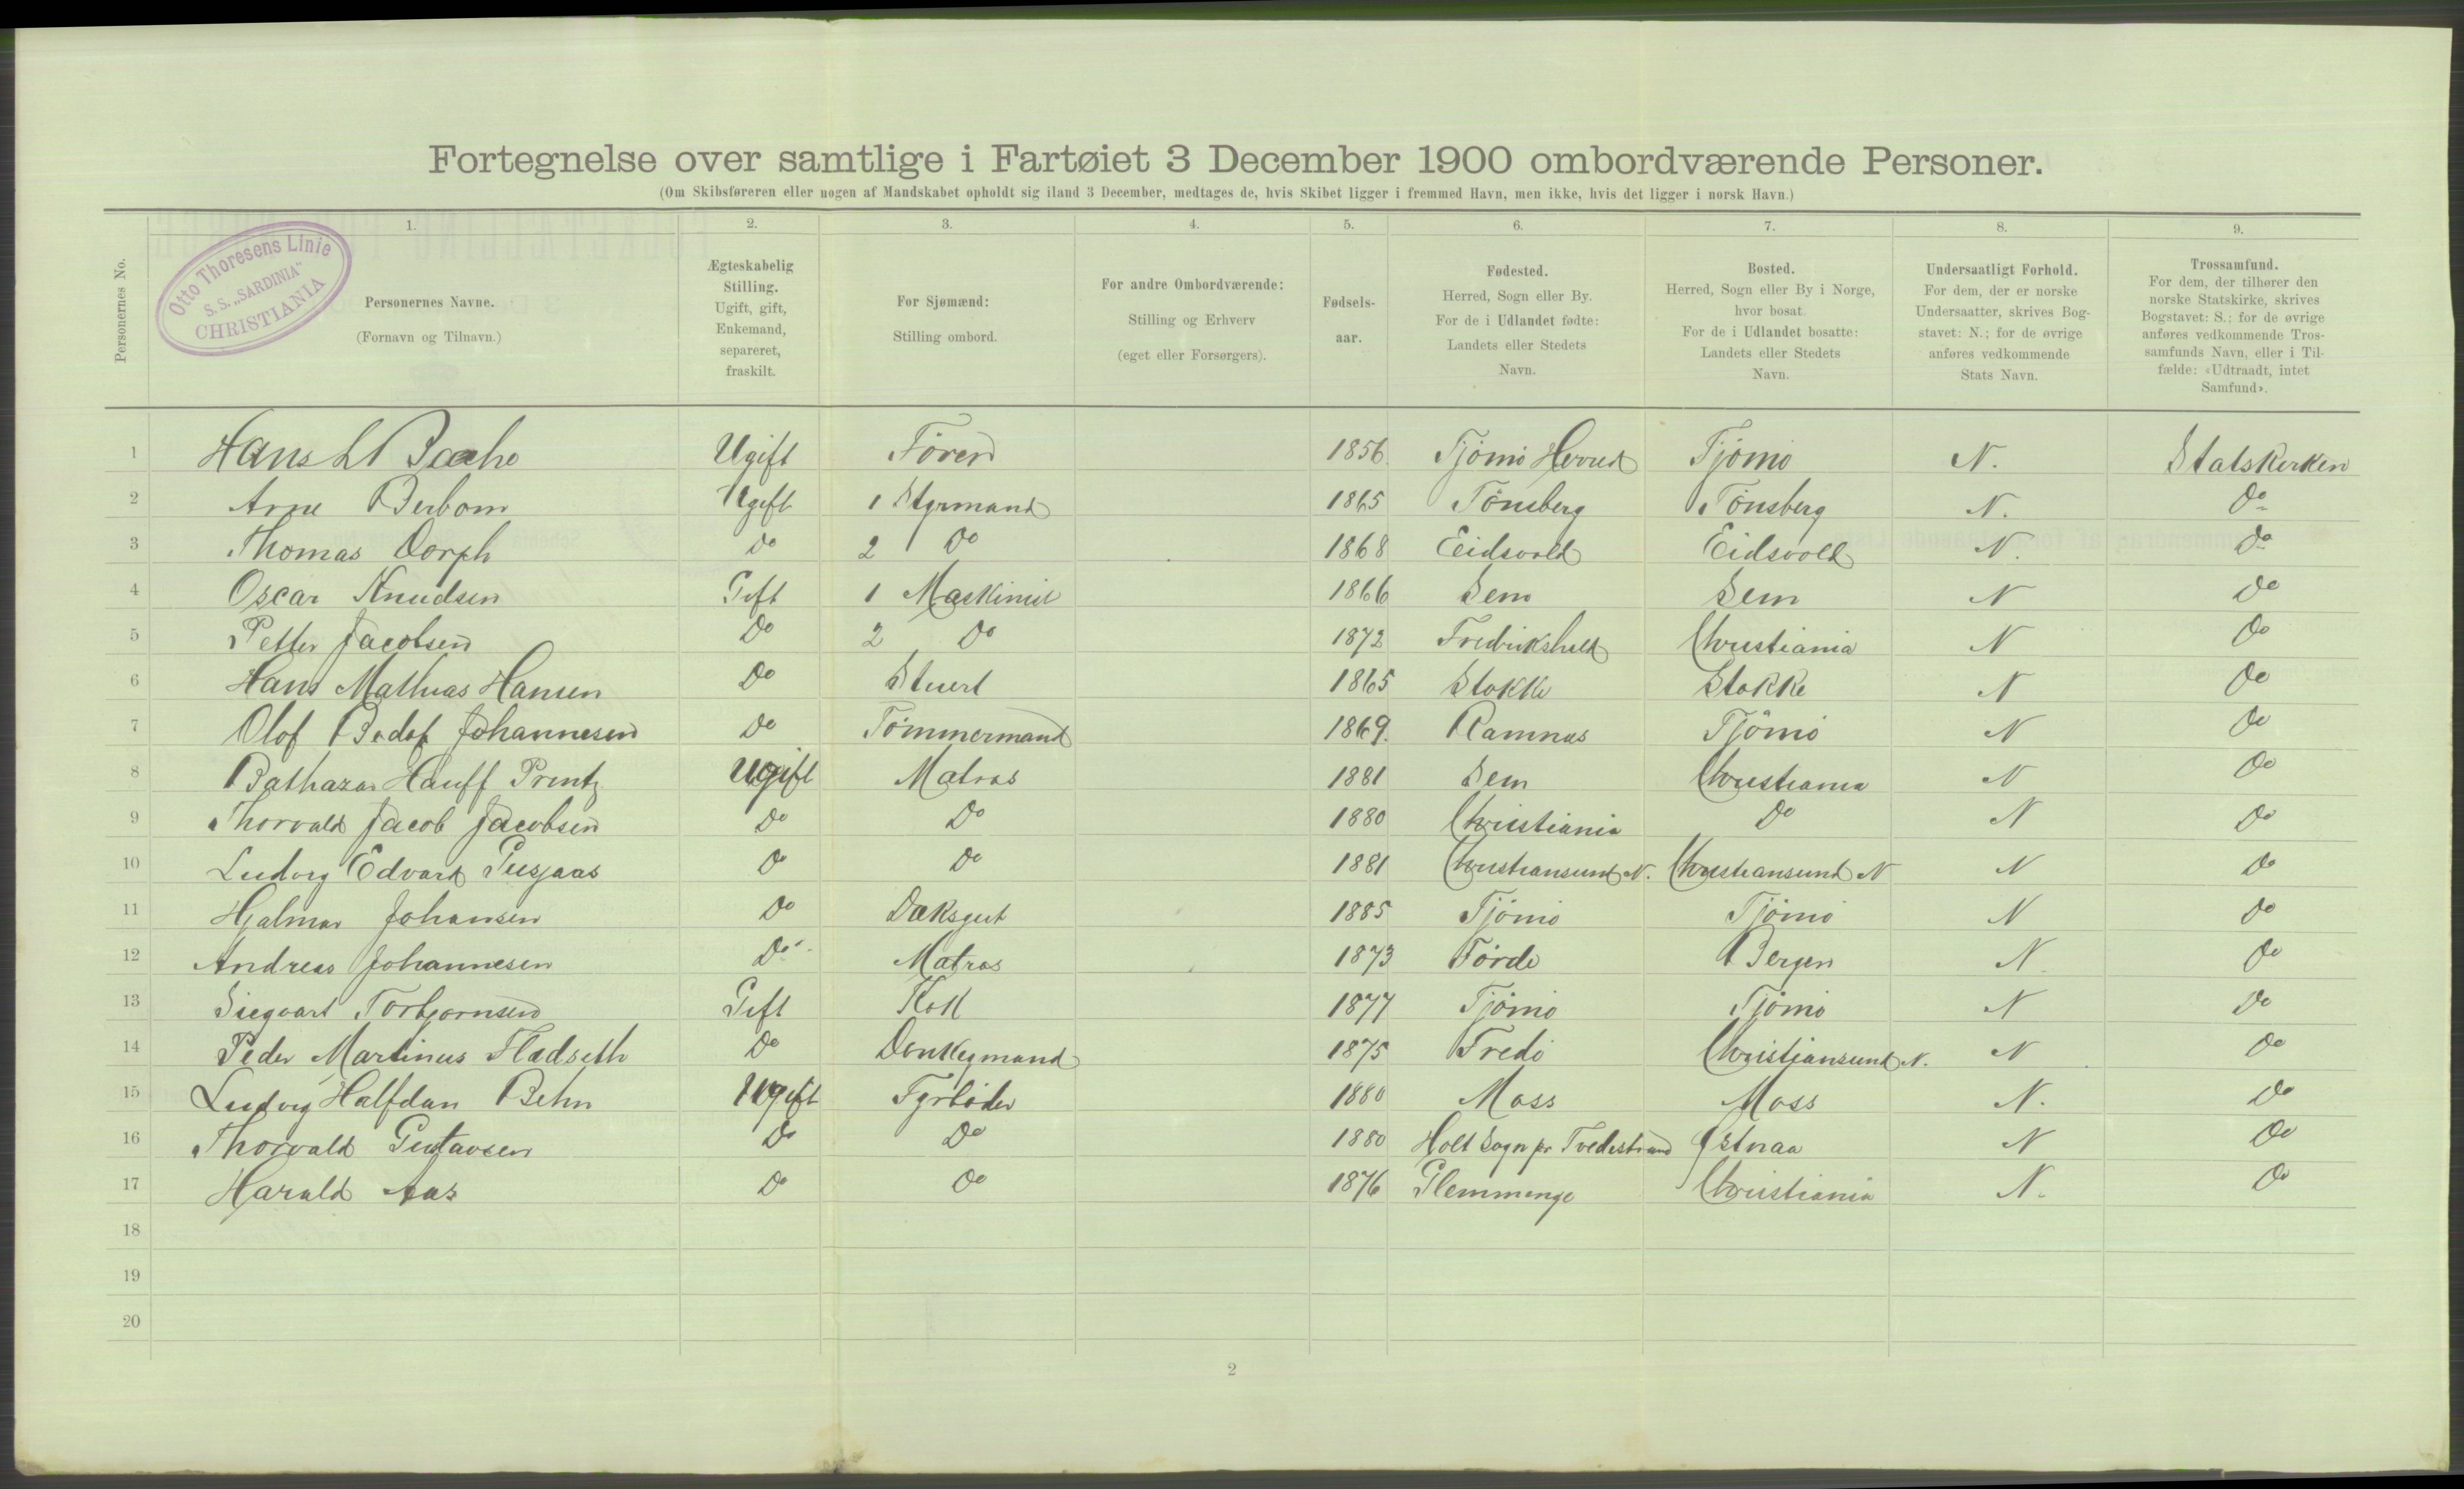 Fortegnelse over samtlige i Fartøiet 3 December 1900 ombordværende Personer.
(Om Skibsføreren eller nogen af Mandskabet opholdt sig iland 3 December, medtages de, hvis Skibet ligger i fremmed Havn, men ikke, hvis det ligger i norsk Havn.)
Personernes No.
1.
Otto Thoresens Linie
S.S. „SARDINIA"
CHRISTIANIA
Personernes Navne.
(Fornavn og Tilnavn.)
2.
Ægteskabelig
Stilling.
Ugift, gift,
Enkemand,
separeret,
fraskilt.
3.
For Sjømænd:
Stilling ombord.
4.
For andre Ombordværende:
Stilling og Erhverv
(eget eller Forsørgers).
5.
Fødsels-
aar.
6.
Fødested.
Herred, Sogn eller By.
For de i Udlandet fødte:
Landets eller Stedets
Navn.
7.
Bosted.
Herred, Sogn eller By i Norge,
hvor bosat.
For de i Udlandet bosatte:
Landets eller Stedets
Navn.
8.
Undersaatligt Forhold.
For dem, der er norske
Undersaatter, skrives Bog-
stavet: N.; for de øvrige
anføres vedkommende
Stats Navn.
9.
Trossamfund.
For dem, der tilhører den
norske Statskirke, skrives
Bogstavet: S.; for de øvrige
anføres vedkommende Tros-
samfunds Navn, eller i Til-
fælde: «Udtraadt, intet
Samfund».
1 Hans L Ugift Fører 1856 Tjömö Herred Tjömö N. Statskirken
2 Arne Berbom Ugift 1 Styrmand 1865 Tönsberg Tönsberg N. Do
3 Thomas Dorph Do 2 Do 1868 Eidsvold Eidsvold N. Do
4 Oscar Knudsen Gift 1 Maskinist 1866 Sem Sem N Do
5 Petter Jacobsen Do 2 Do 1872 Fredrikshald Christiania N Do
6 Hans Mathias Hansen Do Stuert 1865 Stokke Stokke N Do
7 Olof Johannesen Do Tömmermand 1869. Ramnæs Tjömö N Do
8 Balthazar Hauff Printz Ugift Matros 1881 Sem Christiania N Do
9 Thorvald Jacob Jacobsen Do Do 1880 Christiania Do N Do
10 Ludvig Edvard Do Do 1881 Christiansund N. Christiansund N N Do
11 Hjalmar Johansen Do Daksgut 1885 Tjömö Tjömö N Do
12 Andreas Johannesen Do Matros 1873 Förde Bergen N. Do
13 Siegvart Torbjørnsen Gift Kok 1877 Tjömö Tjömö N Do
14 Peder Martinus Fladseth Do Donkeymand 1875 Fredö Christiansund N. N Do
15 Ludvig Halfdan Behn Ugift Fyrböder 1880 Moss Moss N. Do
16 Thorvald Gustavsen Do Do 1880 Holt Sogn pr Tvedestrand N Do
17 Harald Aas Do Do 1876 Glemminge Christiania N. Do
18
19
20
2